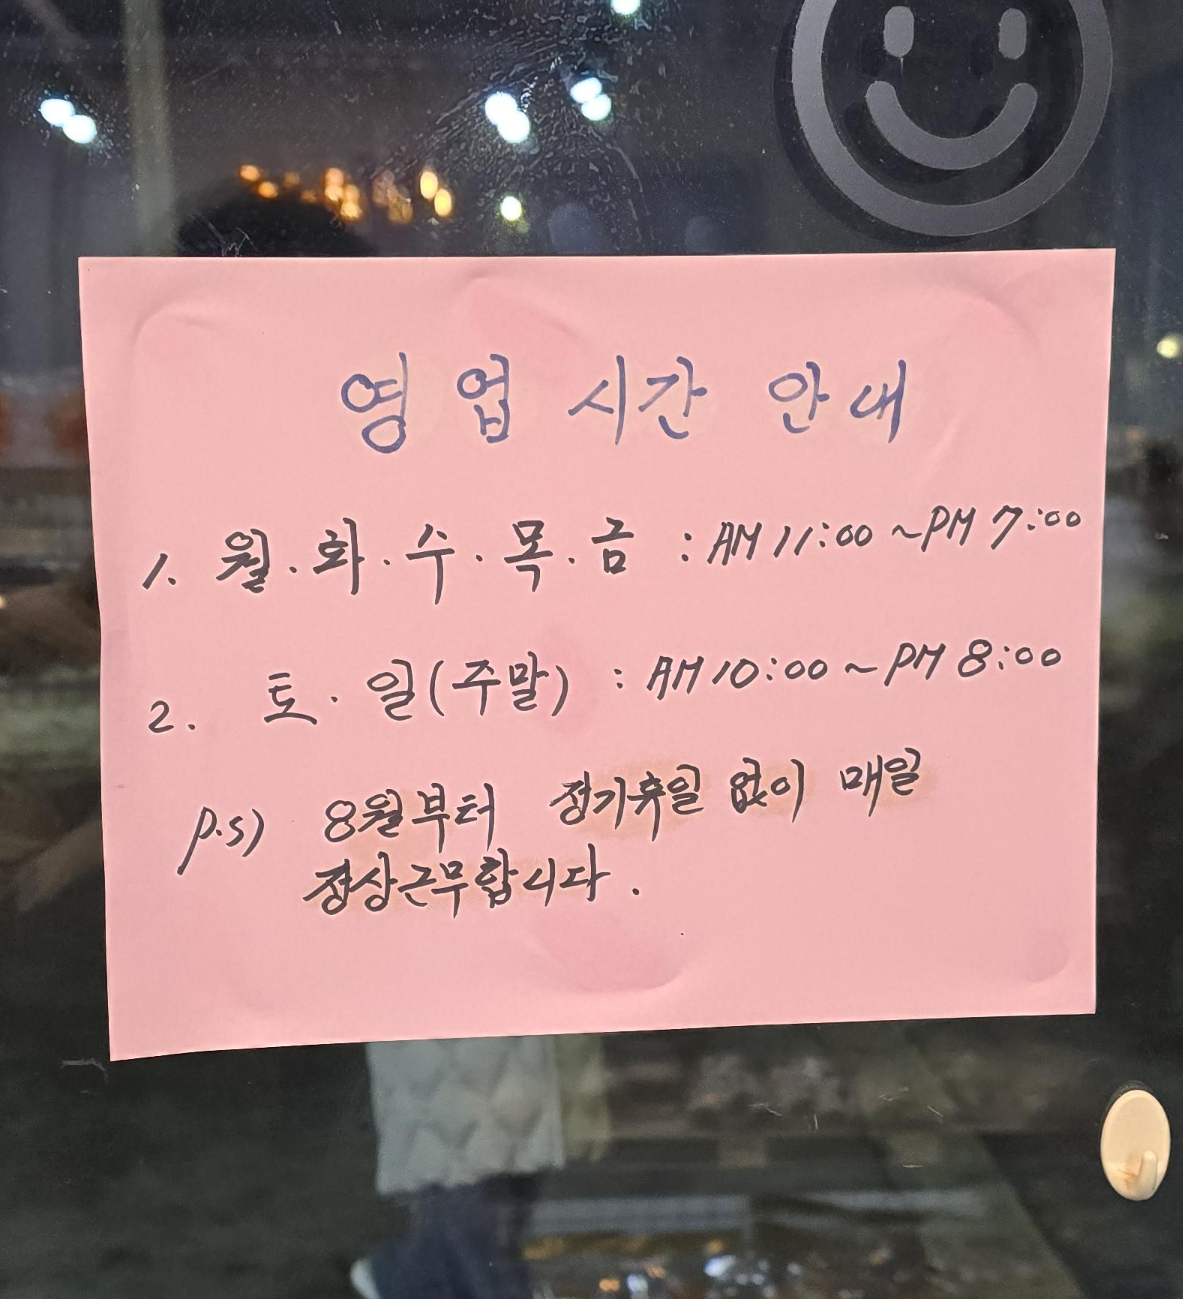 영업 시간 안내
1. 월·화·수·목·금 : AM 11:00 ~ PM 7:00
2. 토·일(주말) : AM 10:00 ~ PM 8:00
P.S) 8월부터 정기휴일 없이 매일
정상근무합니다.